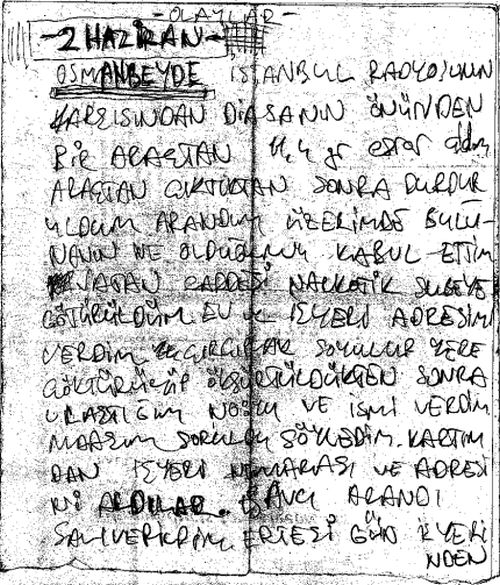 -OLAYLAR-
-2 HAZİRAN-
OSMANBEYDE İSTANBUL RADYOSUNUN
KARŞISINDAN DİASANIN ÖNÜNDEN
BİR ARAÇTAN 4,4 gr esrar aldım
ARAÇTAN ÇIKTIKTAN SONRA DURDUR
ULDUM ARANDIM ÜZERİMDE BULU-
NANIN NE OLDUĞUNU KABUL ETTİM
VATAN CADDESİ NARKOTİK ŞUBEYE
GÖTÜRÜLDÜM. EV ve İŞYERİ ADRESİMİ
VERDİM SOYULUP YERE
ÇÖKTÜRÜLÜP ÖKSÜRTÜLDÜKTEN SONRA
ULAŞTIĞIM NOSU VE İSMİ VERDİM
MAAŞIM SORULDU SÖYLEDİM. KARTIM
DAN İŞYERİ NUMARASI VE ADRESİ
Nİ ALDILAR. AVCI ARANDI
SALIVERİLDİM. ERTESİ GÜN İŞYERİ
NDEN